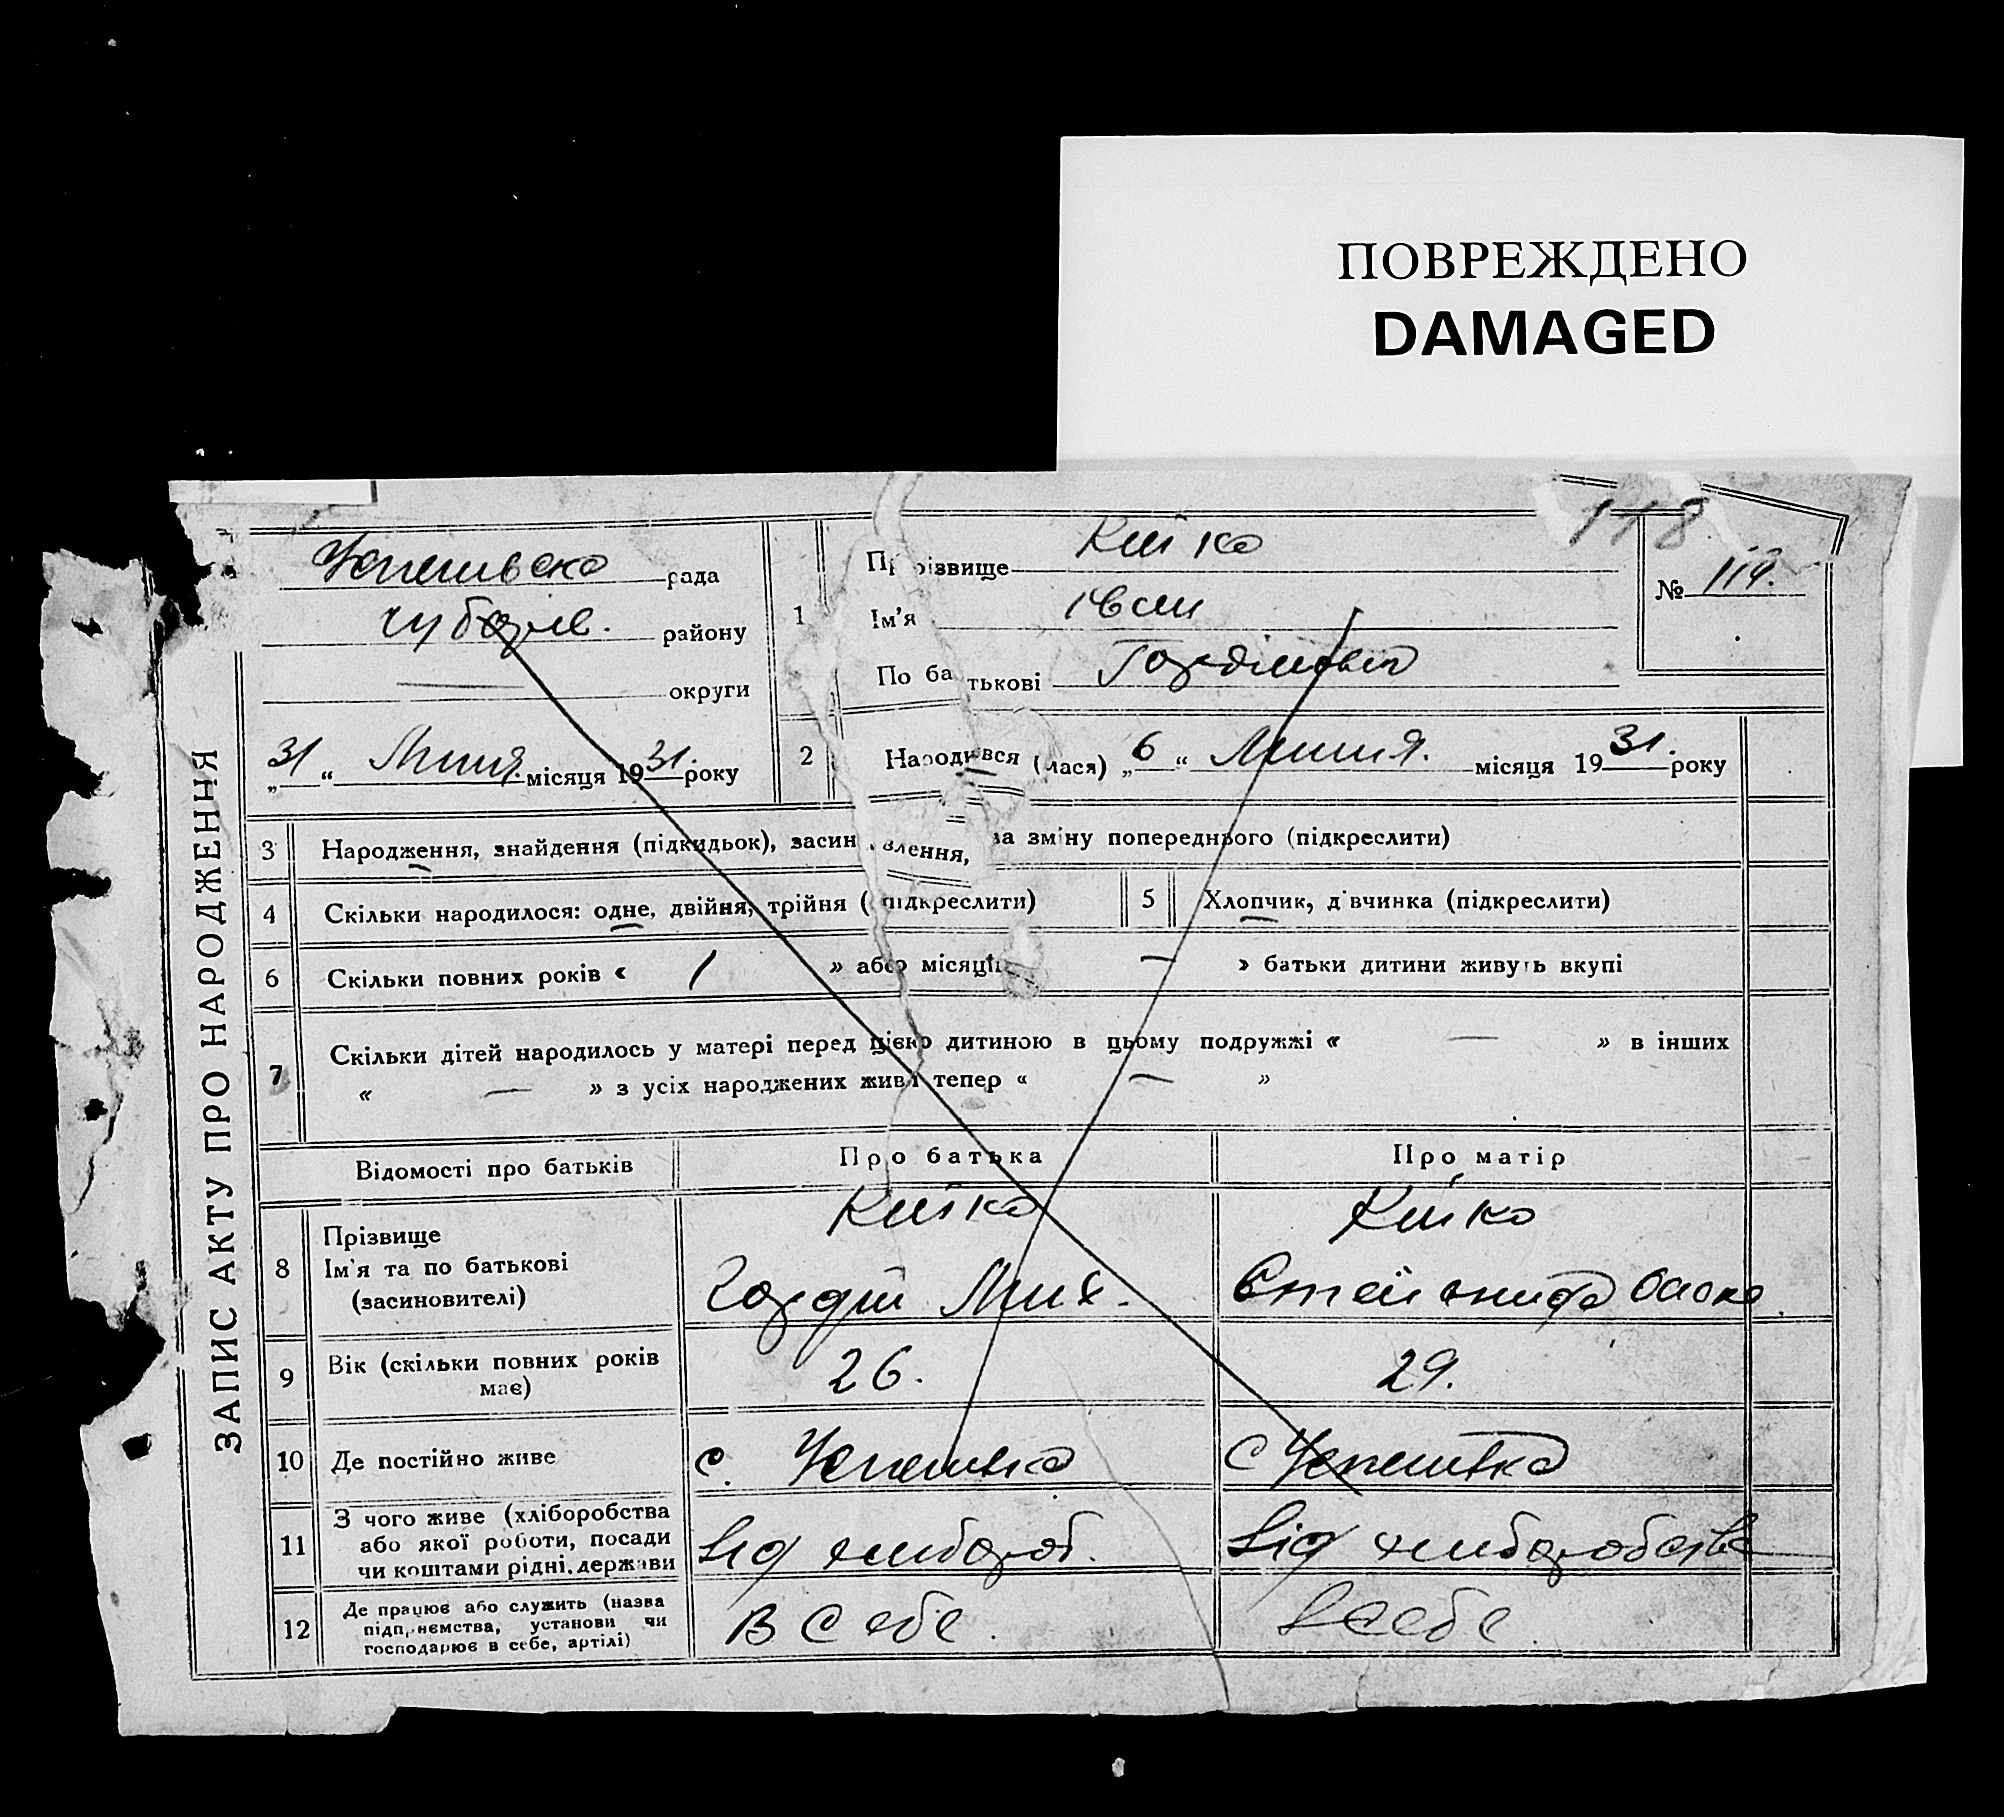 ПОВРЕЖДЕНО
DAMAGED
118
№ 119.
ЗАПИС АКТУ ПРО НАРОДЖЕННЯ
Чепешвска рада
району
— округи
„31“ Липня місяця 1931. року
1
Прізвище Кийко
Ім'я Іван
По батькові Гордійович
2 Народився (лася) „6“ Липня. місяця 1931. року
3 Народження, знайдення (підкидьок), засиновлення, на зміну попереднього (підкреслити)
4 Скільки народилося: одне, двійня, трійня (підкреслити)
5 Хлопчик, дівчинка (підкреслити)
6 Скільки повних років « 1 » або місяців — » батьки дитини живуть вкупі
7 Скільки дітей народилось у матері перед цією дитиною в цьому подружжі « — » в інших
« — » з усіх народжених живі тепер « — »
Відомості про батьків Про батька Про матір
8 Прізвище Кийко Кийко
Ім'я та по батькові
(засиновителі) Гордій Мих.
9 Вік (скільки повних років
має) 26. 29.
10 Де постійно живе с. Чепешвка с Чепешвка
11 З чого живе (хліборобства
або якої роботи, посади
чи коштами рідні, держави Від хлибороб. Від хлиборобства
12 Де працює або служить (назва
підприємства, установи чи
господарює в себе, артілі) В себе. В себе.